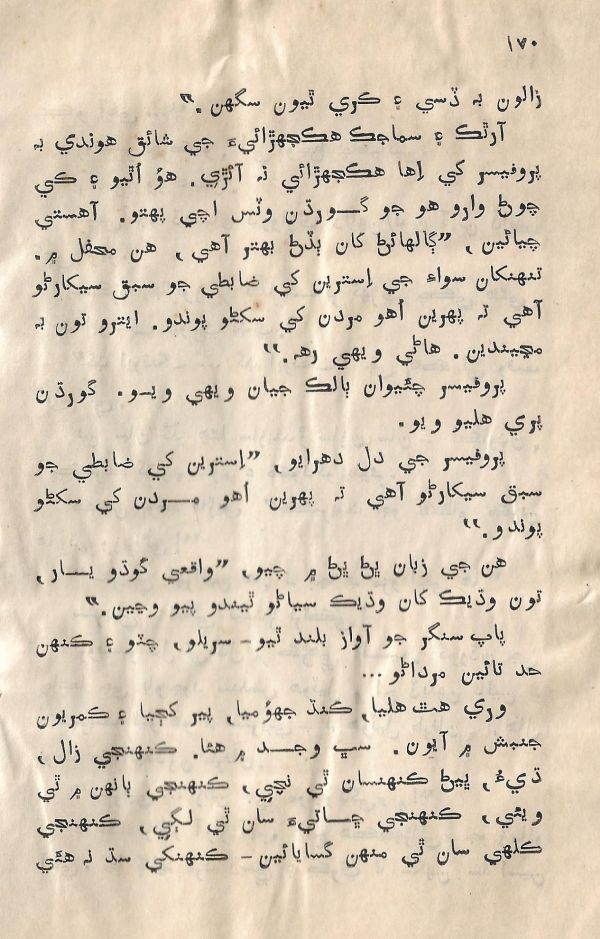 ١٧٠
زالون بہ ڏسي ۽ ڪري ٿيون سگهن.”
آرٿڪ ۽ سماجڪ هڪجهڙائيءَ جي شائق هوندي بہ
پروفيسر کي اِها هڪجهڙائي نہ آئڙي. هؤ اُٿيو ۽ ڪي
چوڻ وارو هو جو گـــورڌن وٽس اچي پهتو. آهستي
چيائين, ”ڳالهائڻ کان ٻڌڻ بهتر آهي, هن محفل ۾.
تنهنکان سواءِ جي اِسترين کي ضابطي جو سبق سيکارڻو
آهي تہ پهرين اُهو مردن کي سکڻو پوندو. ايترو تون بہ
مڃيندين. هاڻي ويهي رهہ.“
پروفيسر چئيوان ٻالڪ جيان ويهي ويــو. گورڌن
پري هليو ويو.
پروفيسر جي دل دهرايو, ”اِسترين کي ضابطي جو
سبق سيکارڻو آهي تہ پهرين اُهو مــردن کي سکڻو
پوندو.“
هن جي زبان ڀڻ ڀڻ ۾ چيو, ”واقعي گوڌو يــار,
تون وڌيڪ کان وڌيڪ سياڻو ٿيندو پيو وڃين.”
پاپ سنگر جو آواز بلند ٿيو - سريلو, چٽو ۽ ڪنهن
حد تائين مرداڻو...
وري هٿ هليا, ڪنڌ جهؤميا, پير کڄيا ۽ ڪمريون
جنبش ۾ آيون. سڀ وجــد ۾ هئا. ڪنهنجي زال,
ڌيءُ, ڀيڻ ڪنهنسان ٿي نچي, ڪنهنجي ٻانهن ۾ ٿي
ويئي, ڪنهنجي ڇــاتيءَ سان ٿي لڳي, ڪنهنجي
ڪلهي سان ٿي منهن گسايائين - ڪنهنکي سڌ نہ هئي